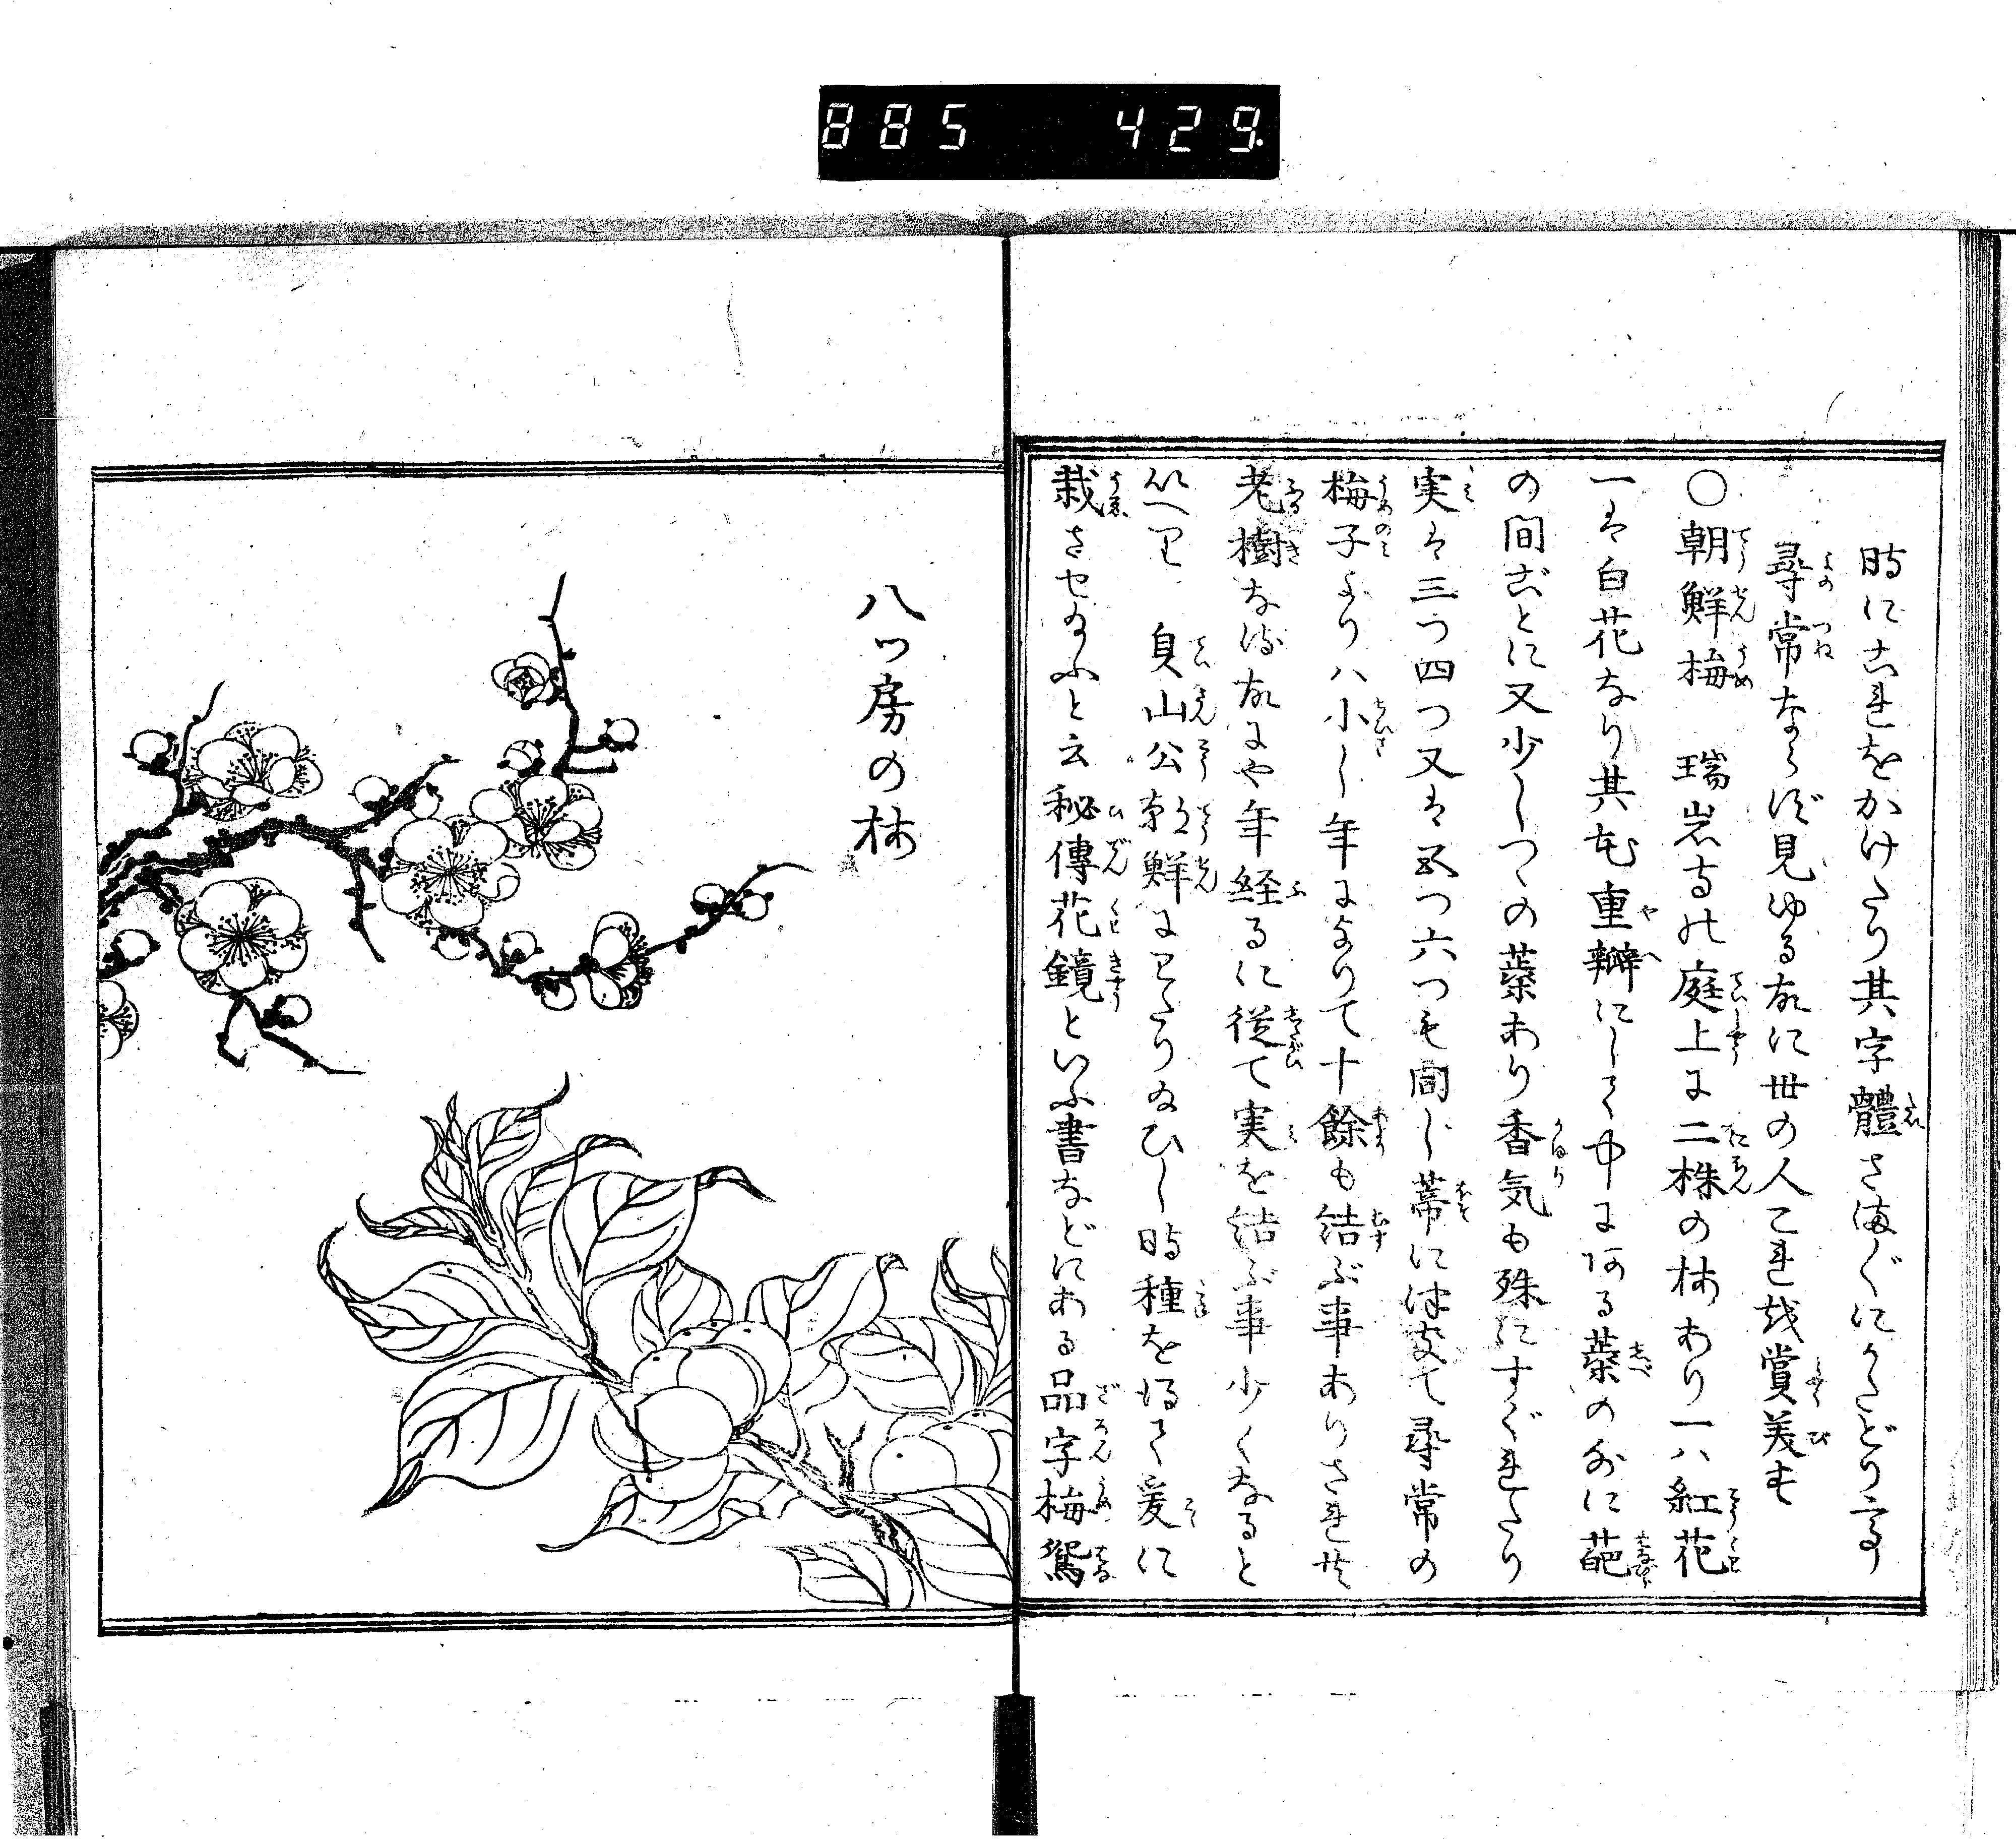 885 429
時にこれをかけたり其字體さまぐにかたどり高
尋常ならず見ゆる故に世の人これ越賞美す
○朝鮮梅 瑞岩寺の庭上に二株の梅あり一ハ紅花
一は白花なり其花重瓣にして中にある蘂の外に葩
の間ごとに又少しつゝの蘂あり香気も殊にすぐれたり
実は三つ四つ又は五つ六つも同じ蒂に集て尋常の
梅子よりハ小し年によりて十餘も結ぶ事ありされ共
老樹なる故にや年経るに従て実を結ぶ事少くなると
いへり 貞山公朝鮮にわたり給ひし時種を得て爰に
栽させ給ふと云秘傳花鏡といふ書などにある品字梅鴛
八ツ房の梅